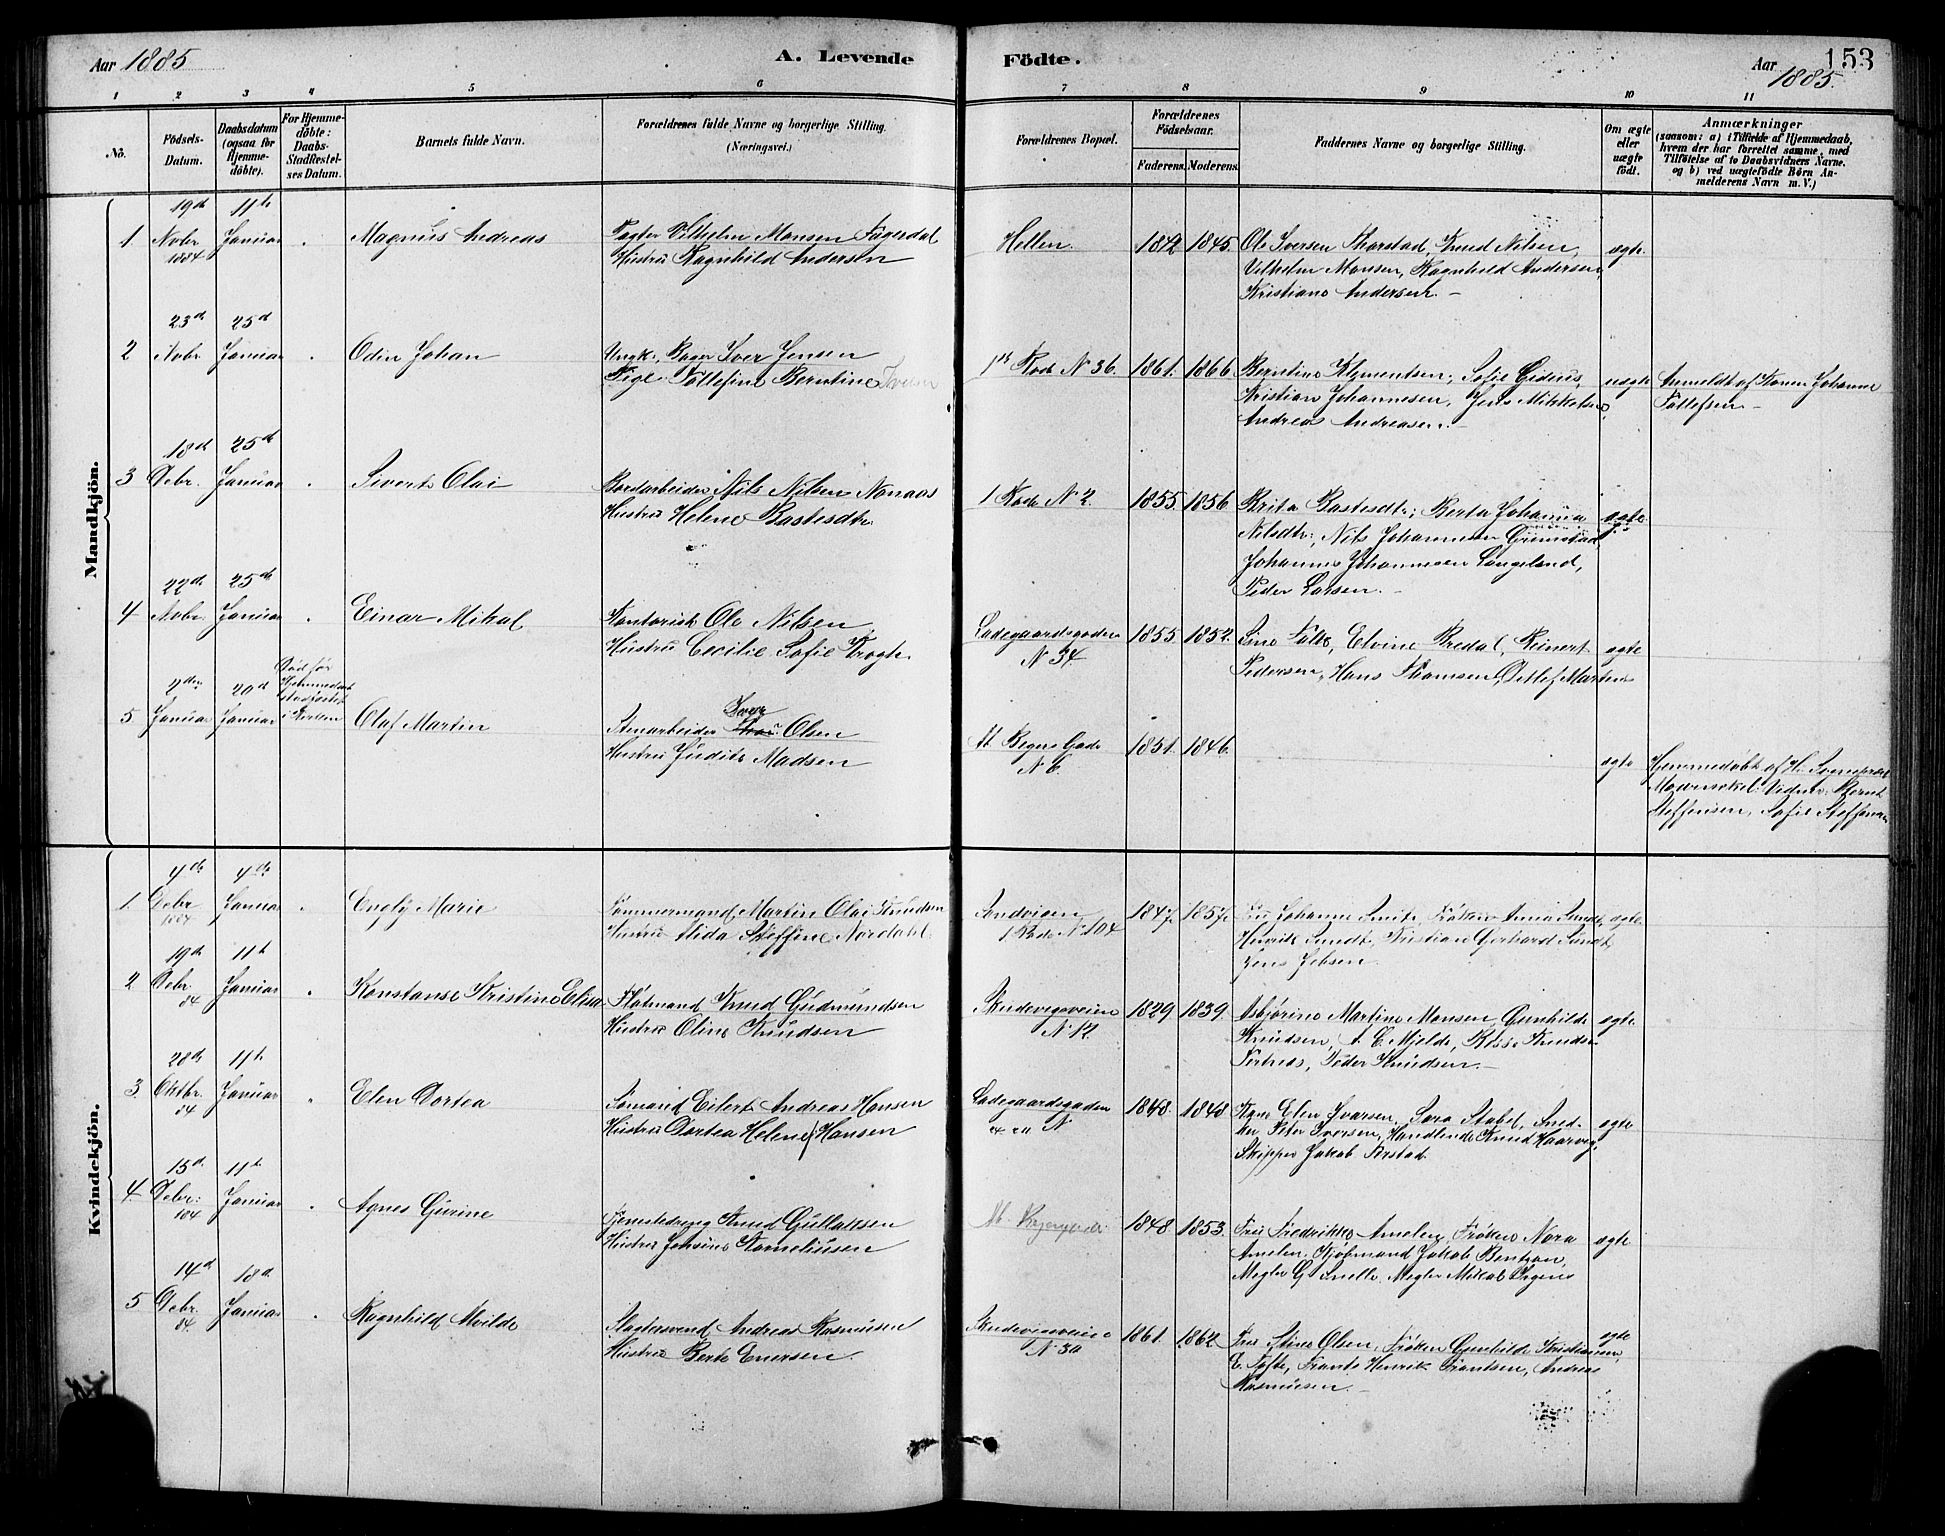 Aar 1885
A. Levende
Födte.
Aar 1885.
153
1 2 3 4 5 6 7 8 9 10 11
No.
Födsels-
Datum.
Daabsdatum
(ogsaa for
Hjemme-
döbte).
For Hjemme-
döbte:
Daabs-
Stadfæstel-
ses Datum.
Barnets fulde Navn.
Forældrenes fulde Navne og borgerlige Stilling.
(Næringsvei.)
Forældrenes Bopæl.
Forældrenes
Födselsaar.
Faderens. Moderens.
Faddernes Navne og borgerlige Stilling.
Om ægte
eller
uægte
födt.
Anmærkninger
(saasom: a) i Tilfælde af Hjemmedaab,
hvem der har forrettet samme, med
Tilföielse af to Daabsvidners Navne,
og b) ved uægtefödte Börn An-
melderens Navn m. V.)
Mandkjön.
1
19d
Novbr
1884
11te
Januar
Magnus Andreas
Vilhelm Monsen Fagerdal
Hustru Ragnhild Andersen
Hellen.
1842 1845.
Ole Iversen Tharstad, Knud Nilsen,
Vilhelm Monsen, Ragnhild Andersen,
Kristiane Andersen. –
ægte.
2
23d
Novbr
25d
Januar
Odin Johan
Ungk. Bager Iver Jensen
Pige Tollefine Berntine
1ste Rode N 36.
1861. 1866
Berntine Klementsen, Sofie Gidius,
Kristian Johannesen, Jens Mikkelsen,
Andreas Andreasen. –
uægte
Anmeldt af Konen Johanne
Tollefsen. –
3
18d
Debr.
25d
Januar
Sivert Olai
Bordarbeider Nils Nilsen Nonaas
Hustru Helene Bastesdtr
1 Rode N 2.
1855. 1856
Brita Bastesdtr; Berta Johanna
Nilsdtr; Nils Johannesen Grimstad
Johannes Johannesen Langeland,
Peder Larsen. –
ægte
4
22d
Novbr.
25d
Januar
Einar Mikal
Kontorist Ole Nilsen
Hustru Cecilie Sofie Krogh.
Ladegaardsgaden
N 34
1855. 1852.
Elvine Bredal, Reinert
Pedersen, Hans Thomsen, Detlef Martens
ægte
5
2den
Januar
20d
Januar
Død før
Hjemmedaab
stadfæstet
i Kirken
Olaf Martin
Iver
Stenarbeider Olsen
Hustru Judite Madsen
N 6.
1851. 1846.
ægte
Hjemmedøbt af Hr. Sogneprest
Vidner: Bernt
Steffensen, Sofie Steffensen
Kvindekjön.
1.
4d
Debr
1884
4de
Januar
Engly Marie
Tømmermand Martin Olai Knudsen
Hustru Alida Steffine Nordahl.
Sandvigen
1 Rode N 104
1847. 1857.
Fru Johanne Smith, Frøken Anna Sundt,
Henrik Sundt, Kristian Gerhard Sundt,
Jens Jebsen
ægte
2
19d
Debr
84
11te
Januar
Konstanse Kristine Elisa
Flötmand Knud Gudmundsen
Hustru Oline Knudsen
Skudevigsveien
N 12.
1829 1839.
Asbjørine Martine Monsen, Gunhilde
Knudsen, A. C. Mjelde, Knudsen
Peder Knudsen. –
ægte
3.
28d
Oktbr.
84
11te
Januar
Elen Dortea
Sømand Eilert Andreas Hansen
Hustru Dortea Helene Hansen
Ladegaardsgaden
N
1848. 1848.
Elen Ivarsen, Stabel, Sned-
ker Peter Iversen, Handlende Knud Haarvig,
Skipper Jakob
ægte
4.
15d
Debr:
11te
Januar
Agnes Gurine
Knud Gullaksen
Hustru Korneliusen
1848 1853.
Fru Fredrikke Amelen, Frøken Nora
Amelen, Kjøbmand Jakob Bentzon,
Megler G Snelle, Megler Mikal
ægte
5
14d
Debr.
84.
18d
Januar
Ragnhild Alvilde
Slagtersvend Andreas Rasmusen
Hustru Berte Enersen.
Skudevigsveien
N 30
1861. 1862
Fru Stine Olsen, Frøken Gunhilde Kristiansen,
Tofte, Frants Henrik Frantsen, Andreas
Rasmusen. –
ægte